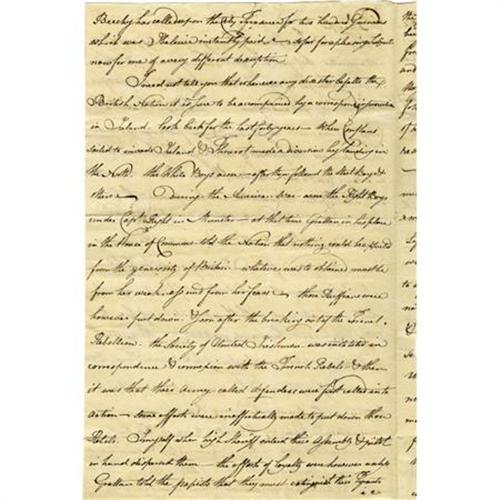 Beechy has called upon the City Treasurer for two hundred Guineas
which was I believe instantly paid — so far for a pleasing subject
now for one of a very different description
I need not tell you that whenever any disaster befalls the
British Nation it is sure to be accompanied by a correspond
in Ireland. Look back for the last forty years — When Conflans
sailed to invade Ireland & Thurot made a diversion by landing in
the North. the White Boys arose — after them followed the Steel Boys &
others — During the American War arose the Right Boys
under Capt. Right in Munster — at that time Grattan in his place
in the House of Commons told the Nation that nothing could be expected
from the generosity of Britain — whatever was to be obtained must be
from her weakness and from her fears — those Ruffians were
however put down. & soon after the breaking out of the French
Rebellion. the Society of United Irishmen was instituted in
correspondence & connexion with the French Rebels & then
it was that their Army called defenders were first called into
Action — some efforts were ineffectually made to put down those
Rebels. I myself when high Sheriff entered their Assembly & pistol
in hand dispersed them — the efforts of Loyalty were however
Grattan told the papists that they must extinguish their Tyrants